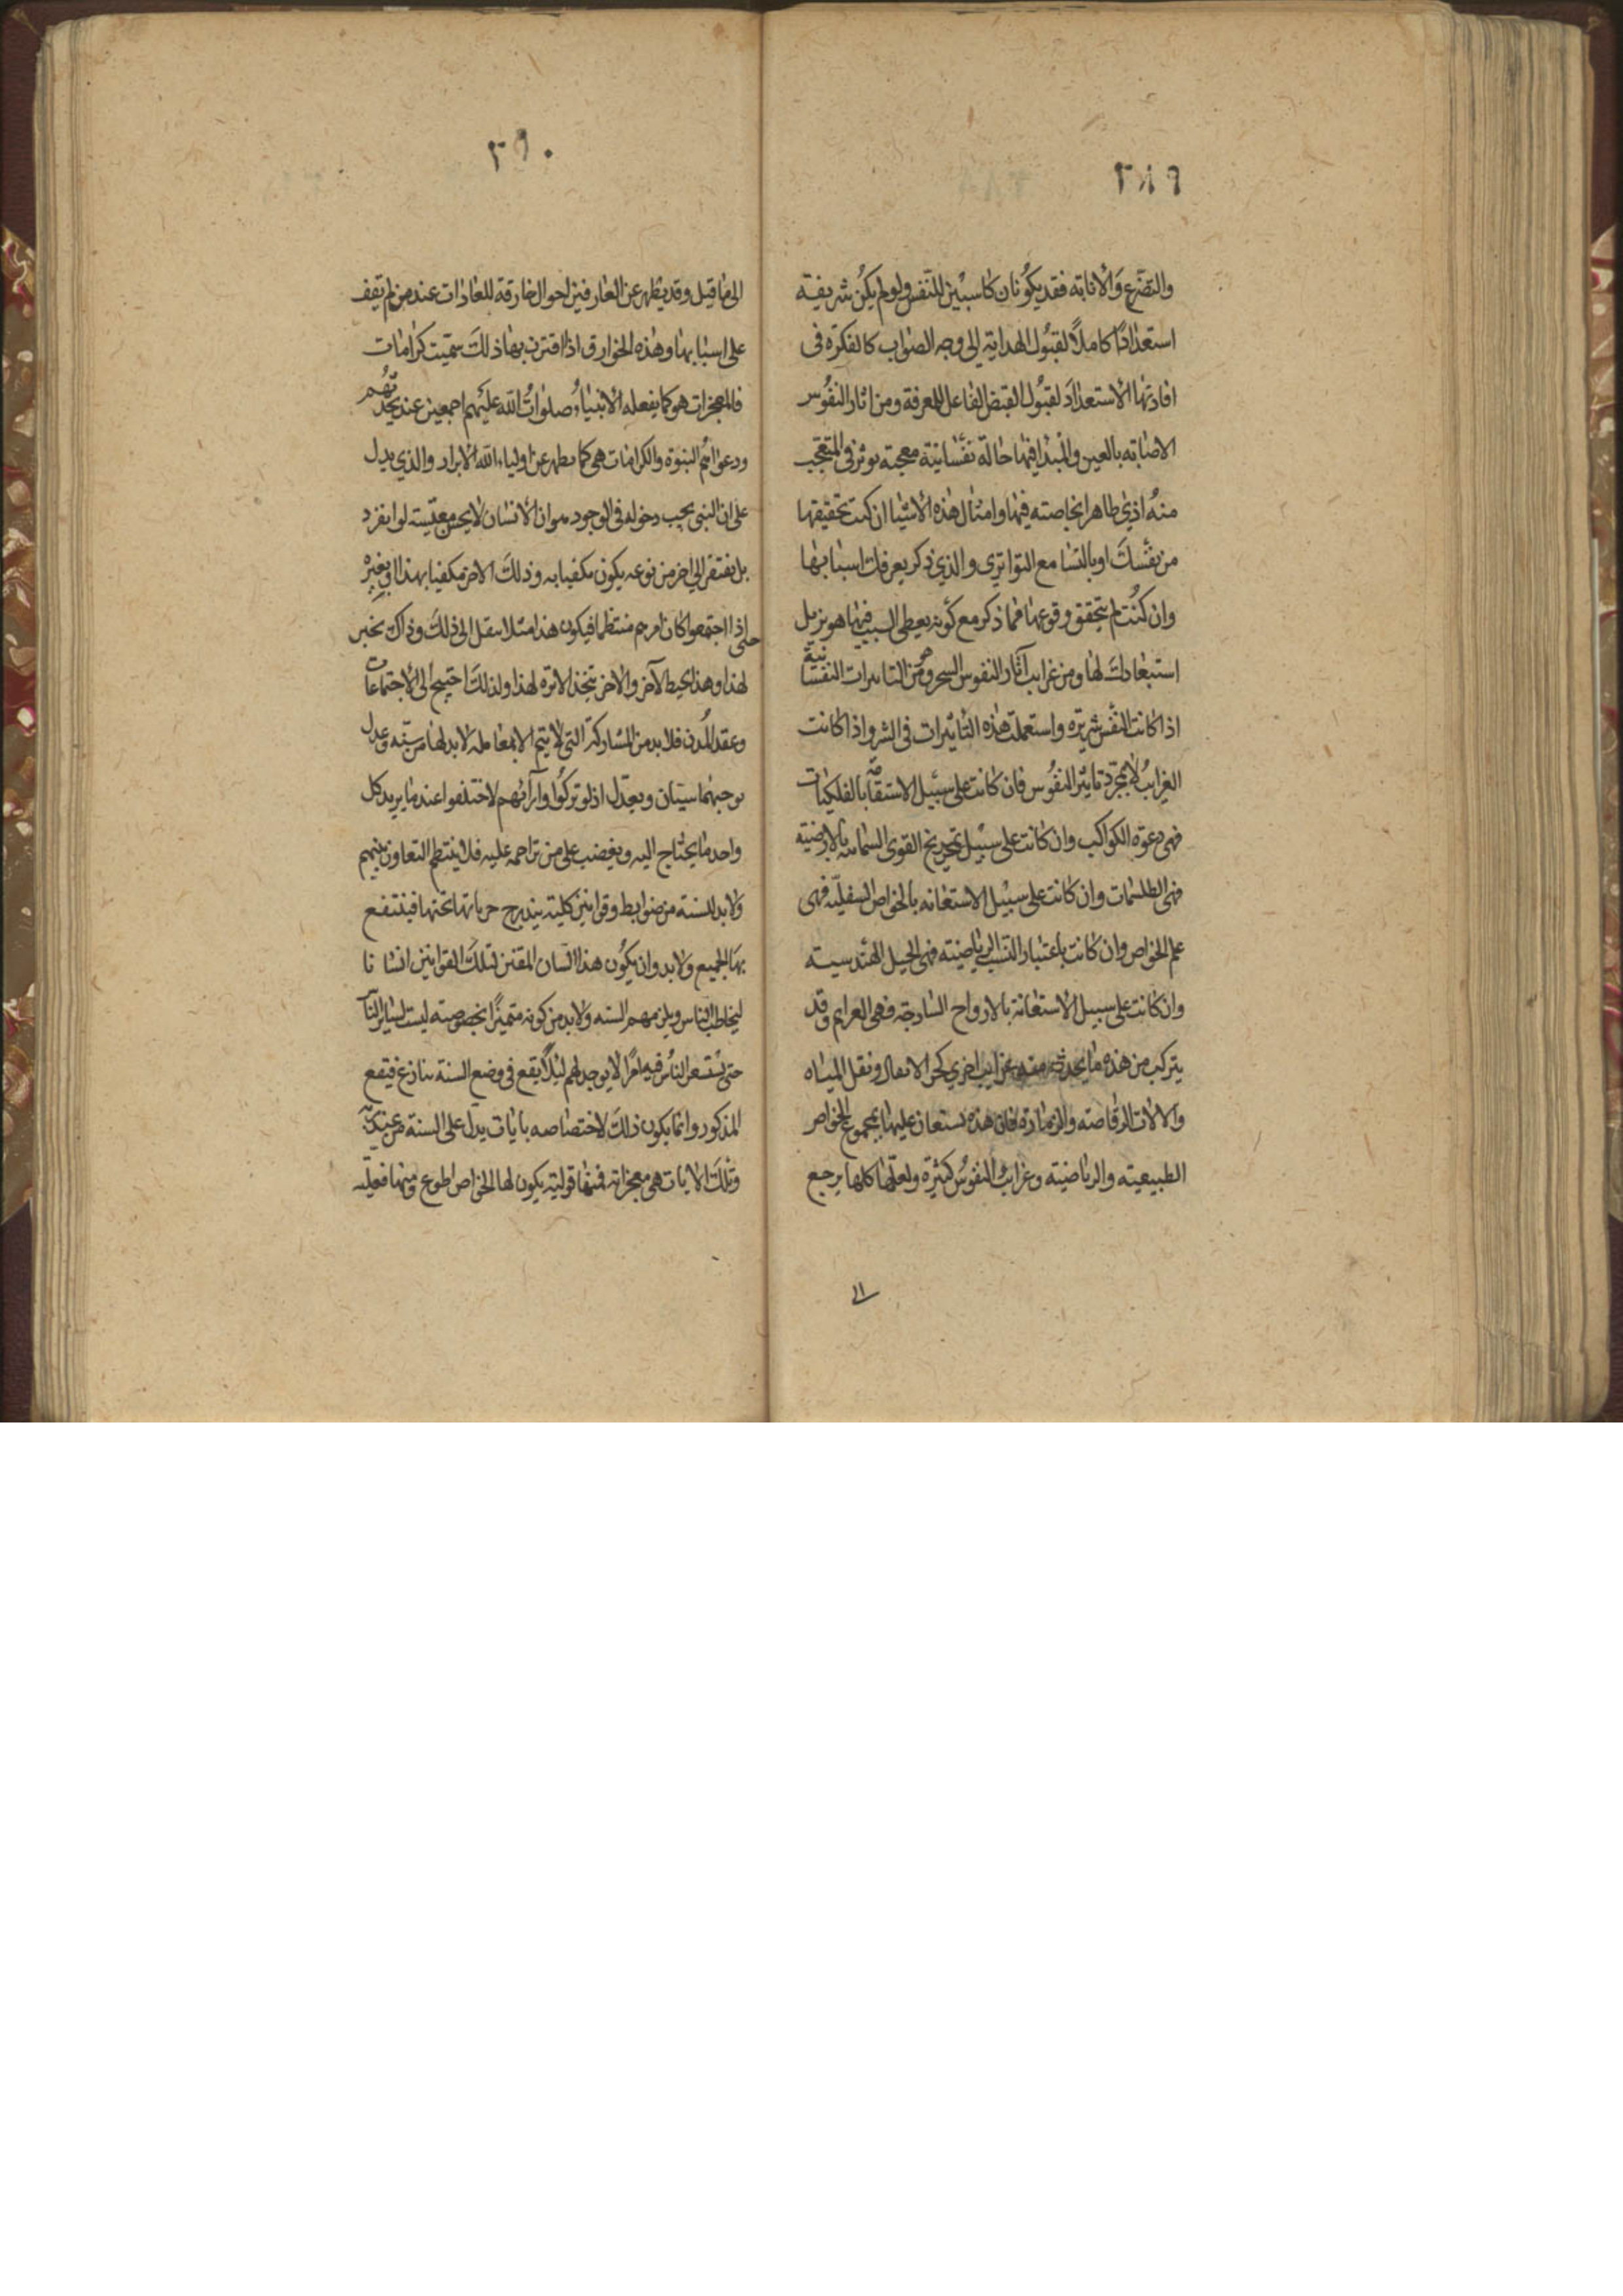 ٣٨٩
والتضرع والانابة فقد يكونان كاسبين للنفس ولو لم يكن شريفة
استعدادًا كاملًا لقبول الهداية الى وجه الصواب كالفكرة فى
افادتها الاستعداد لقبول الفيض الفاعل للمعرفة ومن اثار النفوس
الاصابة بالعين والمبدا فيها حالة نفسانية معجبة توثر فى المتعجب
منه اذي ظاهرا بخاصته فيها وامثال هذه الاشيا ان كنت تحقيقها
من نفسك او بالتسامع التواتري والذي ذكر يعرفك اسبابها
وان كنت لم تتحقق وقوعها فما ذكر مع كونه يعطى السبب فيها هو يزيل
استبعادك لها ومن غرايب آثار النفوس السحر وهو من التاثيرات النفسانية
اذا كانت النفس شريرة واستعملت هذه التاثيرات فى الشر واذا كانت
الغرايب لا بمجرد تاثير النفوس فان كانت على سبيل الاستقآ بالفلكيات
فهى دعوة الكواكب وان كانت على سبيل تمزيج القوى السمائية بالارضية
فهى الطلسمات وان كانت على سبيل الاستعانة بالخواص السفلية فهى
علم الخواص وان كانت باعتبار النسب الرياضية فهى الحيل الهندسية
وان كانت على سبيل الاستعانة بالارواح الساذجة فهى العزايم وقد
يتركب من هذه ما يحدث منه غرايب اخري كجر الاثقال ونقل المياه
والالات الرقاصة والزمارة فان هذه تستعان عليها بمجموع الخواص
الطبيعية والرياضية وغرايب النفوس كثيرة ولعلها كلها يرجع
الى
٣٩٠
الى ما قيل وقد يظهر عن العارفين احوال خارقة للعادات عند من لم يقف
على اسبابها وهذه الخوارق اذا اقترن بها ذلك سميت كرامات
فالمعجزات هو كما يفعله الانبياء صلوات الله عليهم اجمعين عند تحديهم
ودعواهم النبوة والكرامات هى كما يظهر عن اولياء الله الابرار والذي يدل
على ان النبى يجب دخوله فى الوجود هو ان الانسان لا يحسن معيشته لو انفرد
بل يفتقر الى اخر من نوعه يكون مكفيا به وذلك الاخر مكفيا بهذا او بغيره
حتى اذا اجتمعوا كان امرهم منتظما فيكون هذا مثلا ينقل الى ذلك وذاك يخبز
لهذا وهذا يخيط لآخر والاخر يتخذ الابرة لهذا ولذلك احتيج الى الاجتماعات
وعقد المدن فلا بد من المشاركة التى لا يتم الا بمعاملة لا بد لها من سنة وعدل
يوجبهما سيتان ويعدل اذ لو تركوا وآرآئهم لاختلفوا عند ما يريد كل
واحد ما يحتاج اليه ويغضب على من تزاحمه عليه فلا ينتظم التعاون بينهم
ولا بد للسنة من ضوابط وقوانين كلية يندرج جزياتها تحتها فينتفع
بها الجميع ولا بد وان يكون هذا السان المقنن لتلك القوانين انسانا
ليخاطب الناس ويلزمهم السنه ولا بد من كونه متميزًا بخصوصية ليست لساير النآ
حتى يستشعر الناس فيه امرًا لا يوجد لهم ليلا يقع فى وضع السنة تنازع فيقع
المذكور وانما يكون ذلك لاختصاصه بايات يدل على السنة من عند ربه
وتلك الايات هى معجزاته فمنها قولية يكون لها الخواص اطوع ومنها فعلية